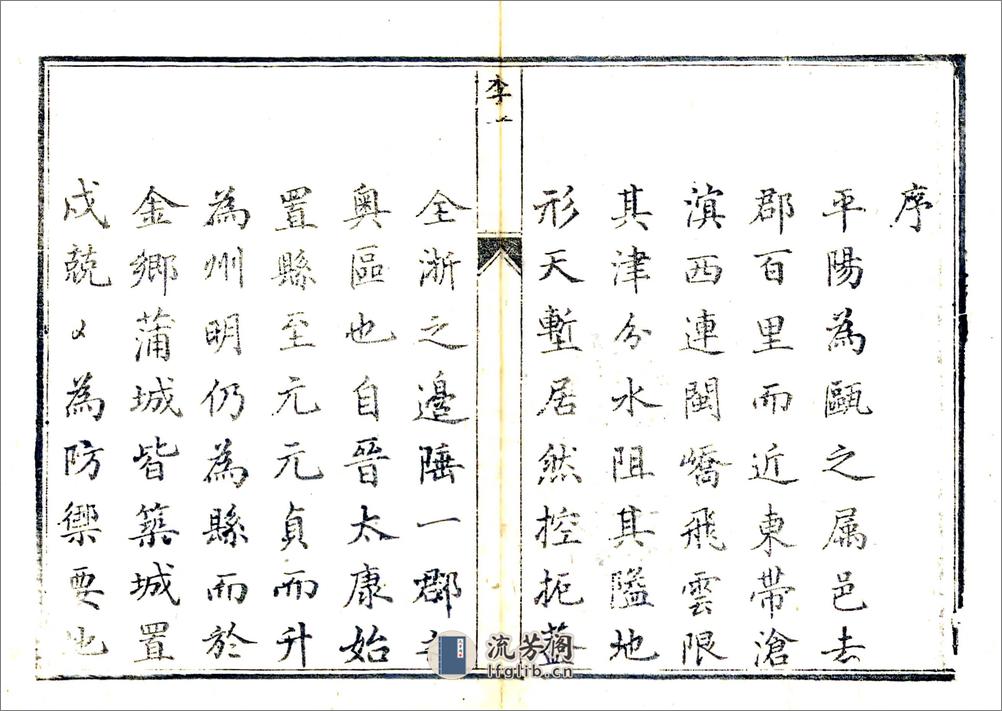 序
平陽為甌之属邑去
郡百里而近東帶滄
滇西連閩嶠飛雲限
其津分水阻其隘地
形天塹居然控扼葢
李一
全淅之邉陲一郡之
奥區也自晉太康始
置縣至元元貞而升
為州明仍為縣而於
金鄉蒲城皆築城置
戍兢〻為防禦要也
流芳阁
lfglib.cn